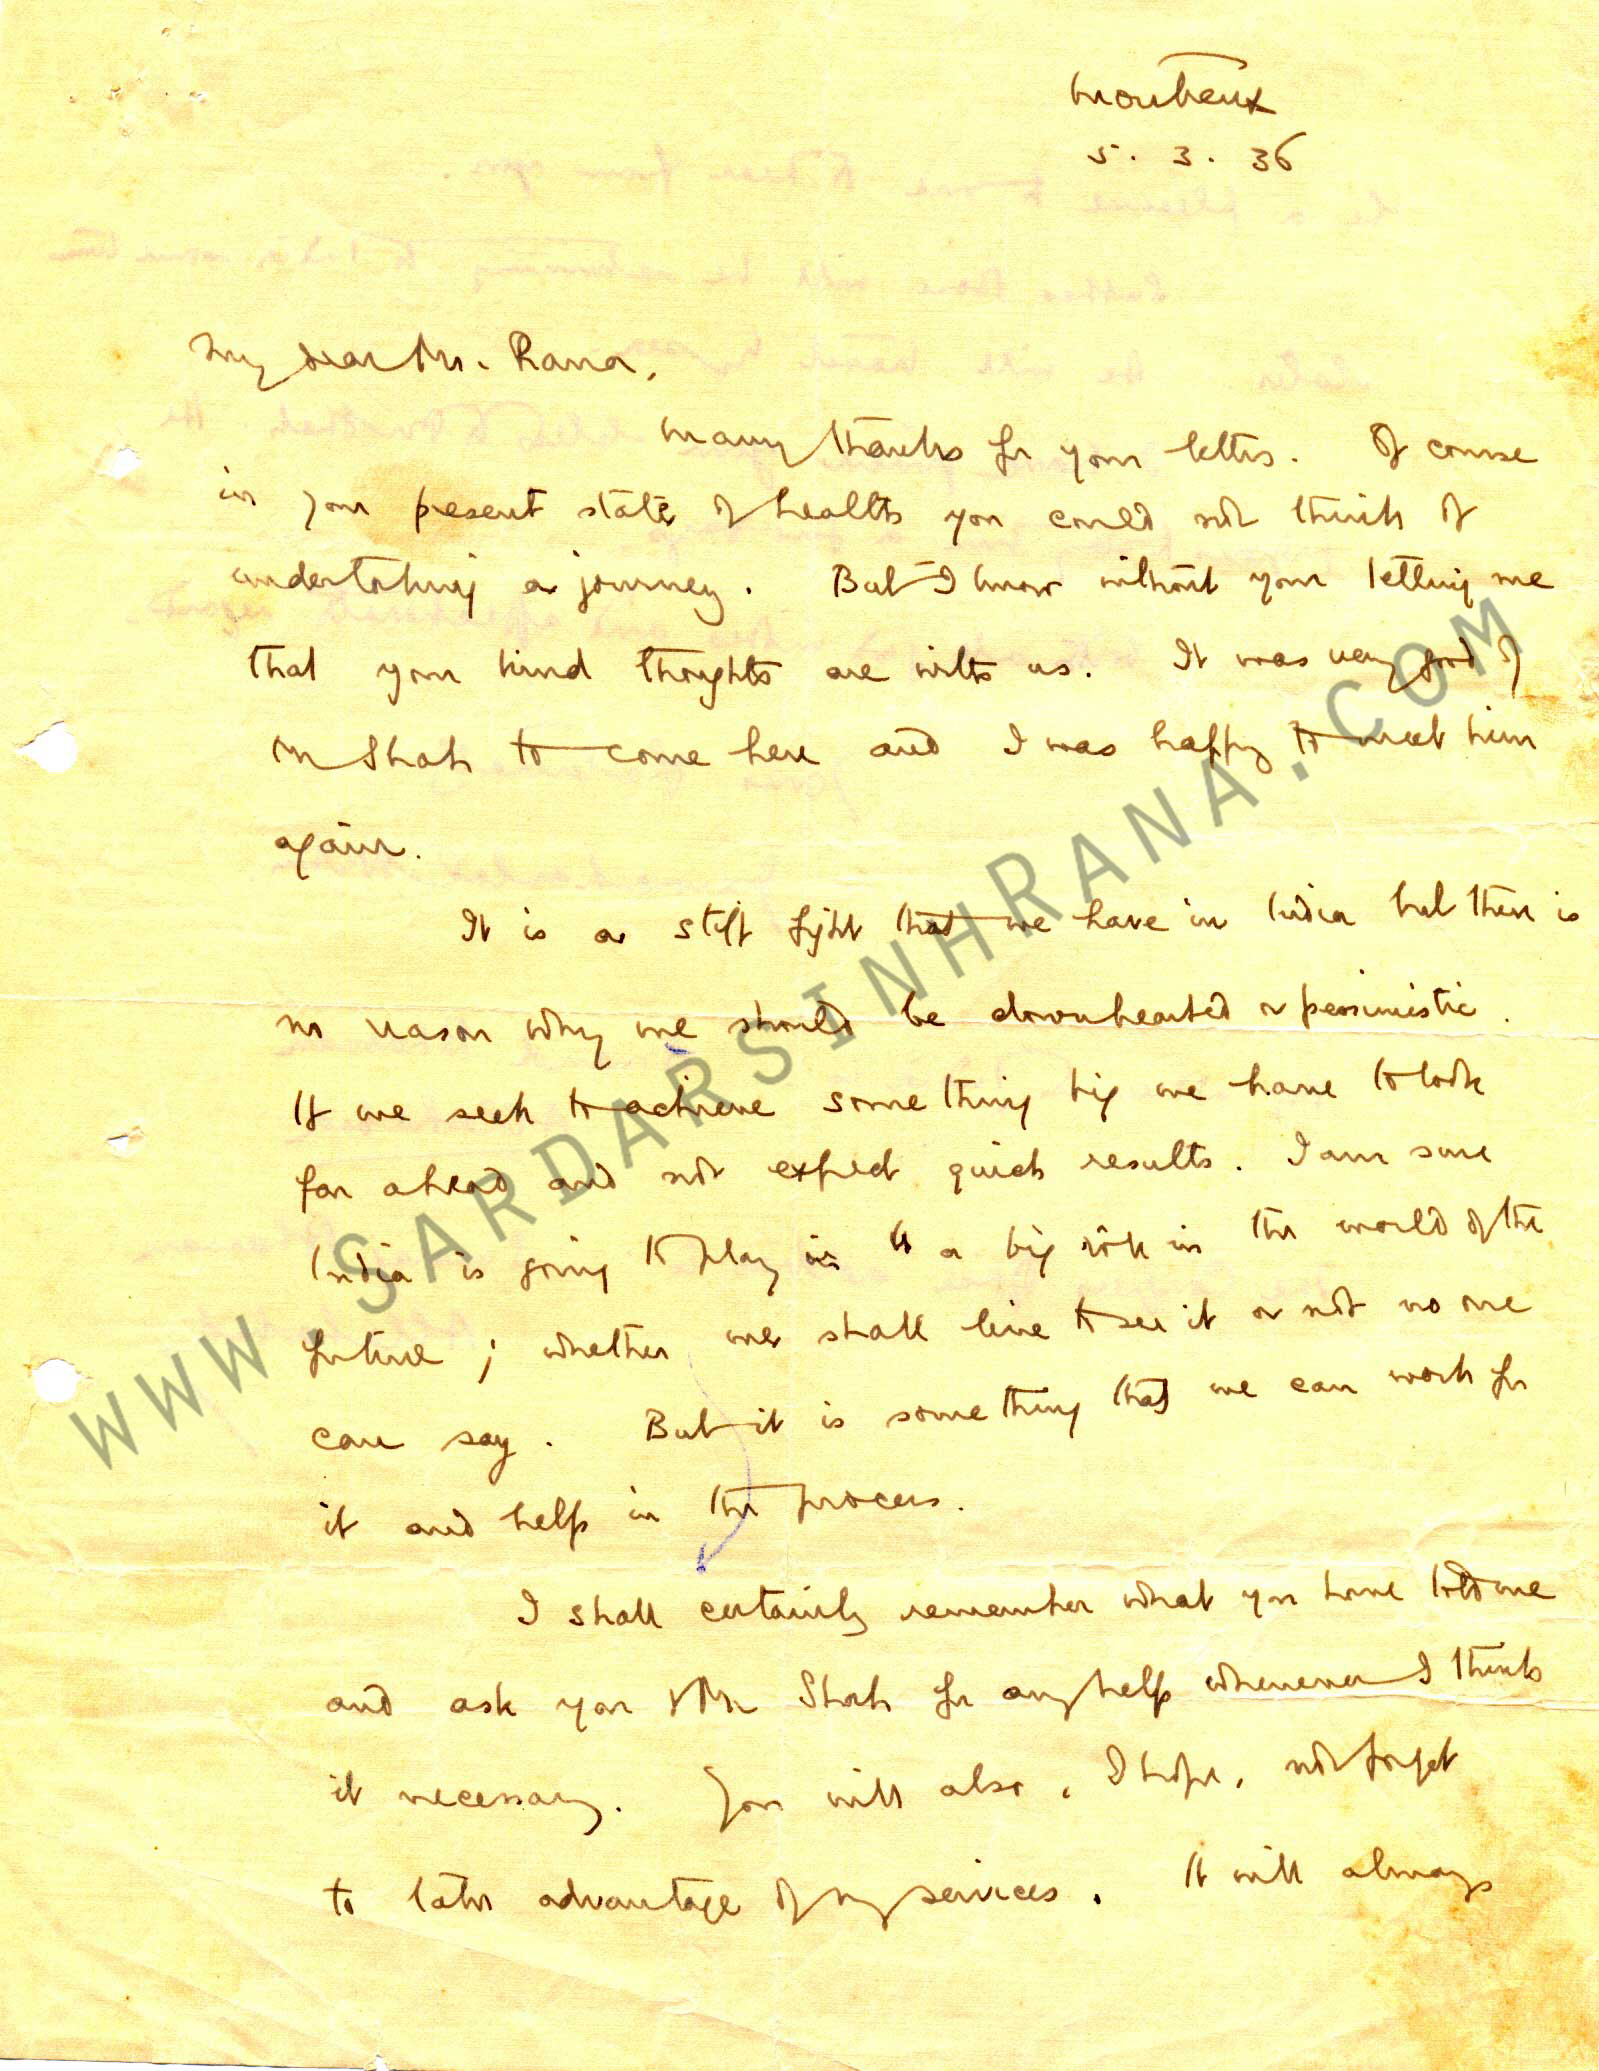 Montreux
5. 3. 36
My dear Mr. Rana,
Many thanks for your letters. Of course
in your present state of health you could not think of
undertaking a journey. But I know without your telling me
that your kind thoughts are with us. It was very good of
Mr Shah to come here and I was happy to meet him
again.
It is a stiff fight that we have in India but there is
no reason why we should be downhearted or pessimistic.
If we seek to achieve something big we have to look
far ahead and not expect quick results. I am sure
India is going to play a big rôle in the world of the
future; whether we shall live to see it or not no one
can say. But it is something that we can work for
it and help in the process.
I shall certainly remember what you have told me
and ask you & Mr Shah for any help whenever I think
it necessary. You will also, I hope, not forget
to take advantage of my services. It will always
WWW.SARDARSINHRANA.COM